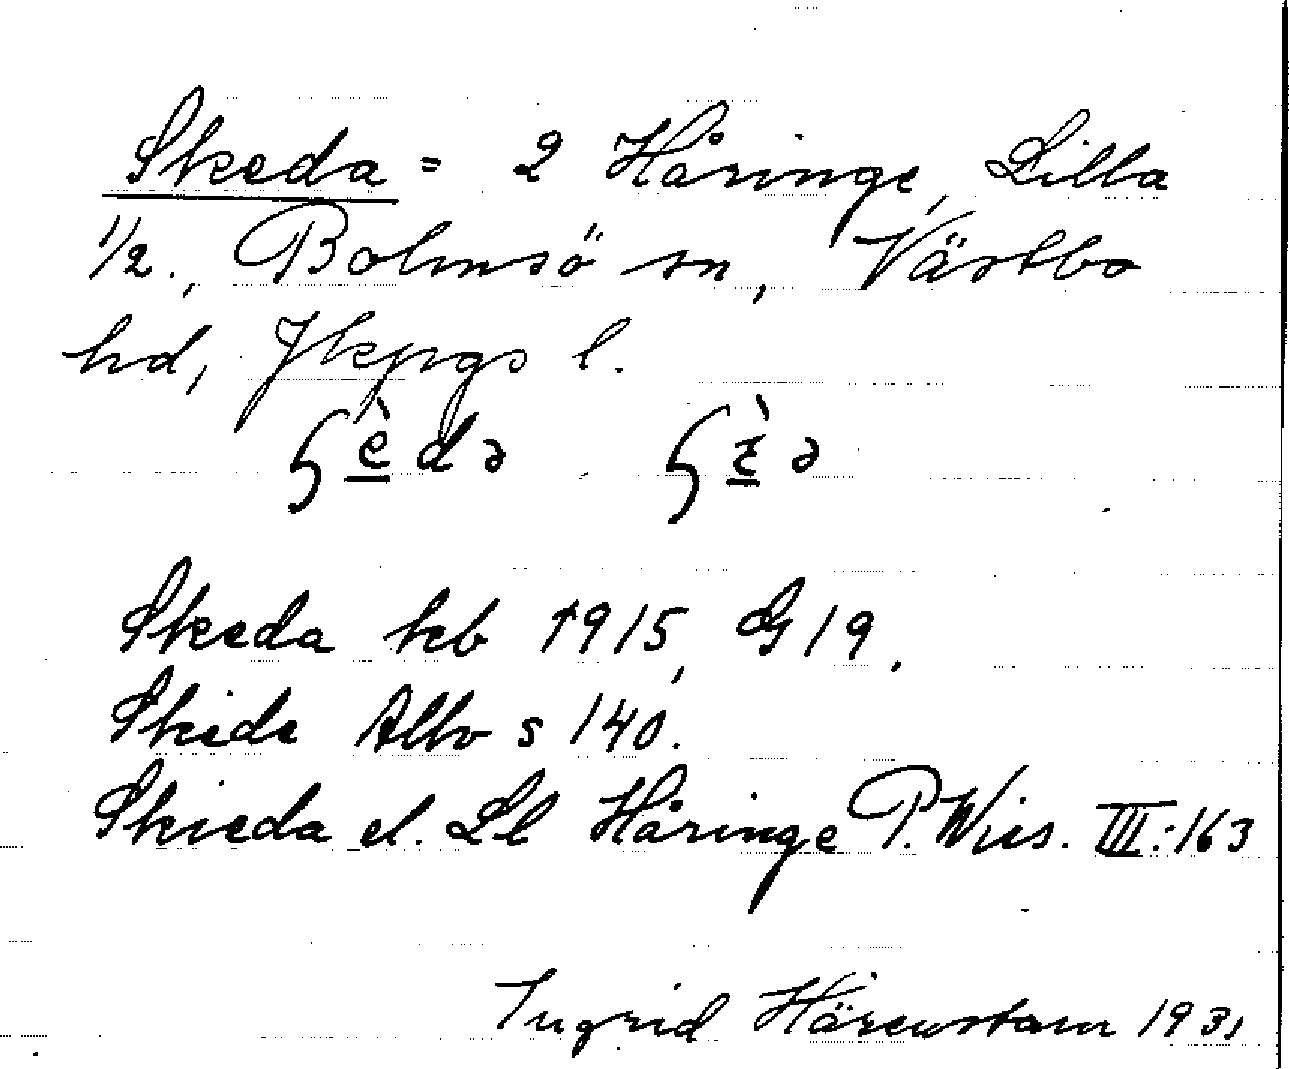 Skeda = 2 Håringe, Lilla
1/2., Bolmsö sn, Västbo
hd, Jkpgs l.
Skeda kb 1915, G 19.
Skede Allbo s 140.
Skieda el. Ll Håringe P. Wies. III:163
Ingrid Härenstam 1931